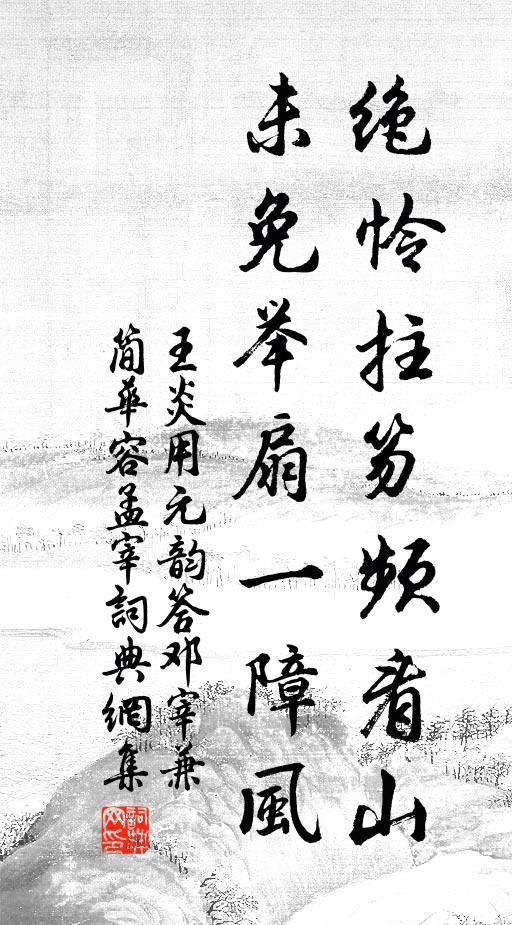 绝怜拄笏频看山
未免举扇一障風
王炎用元韵答邓宰兼
简華容孟宰詞典網集